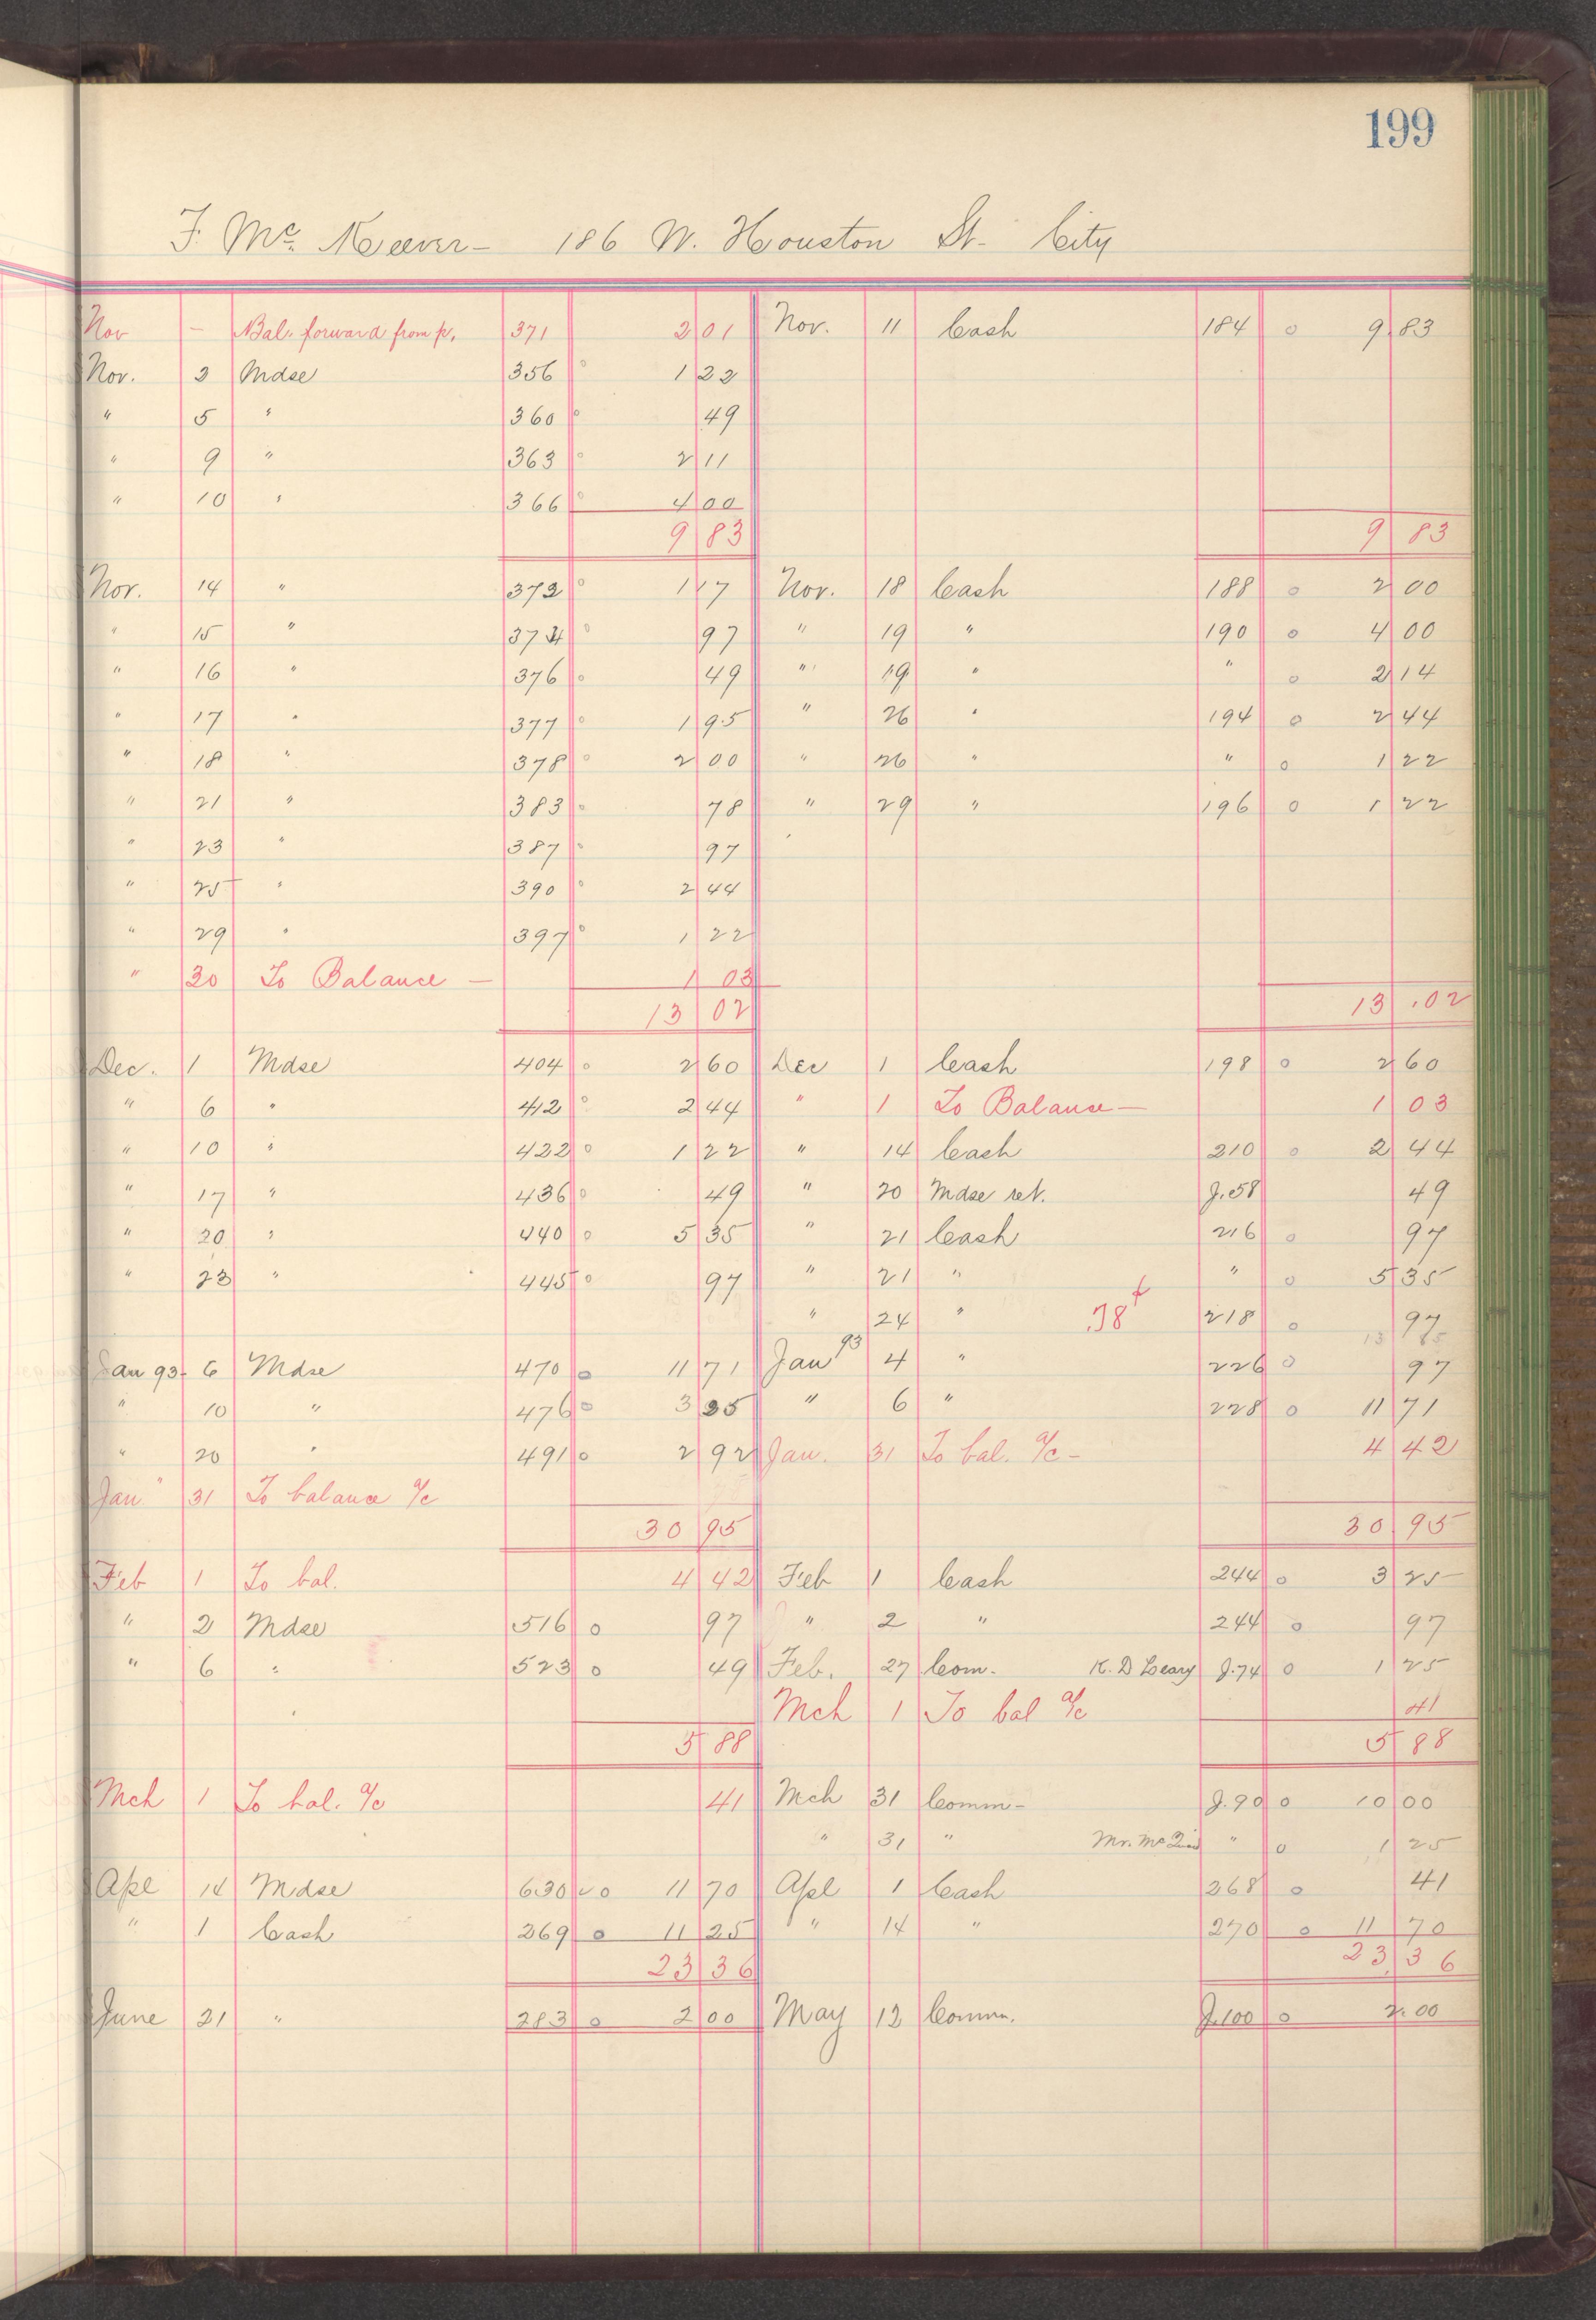 199
F. Mc Keever - 186 W. Houston St - City
Nov - Bal. forward from p. 371 2 01 Nov. 11 Cash 184 o 9 83
Nov. 2 Mdse 356 o 1 22
" 5 " 360 o 49
" 9 " 363 o 2 11
" 10 " 366 o 4 00
9 83 9 83
Nov. 14 " 372 o 1 17 Nov. 18 Cash 188 o 2 00
" 15 " 374 o 97 " 19 " 190 o 4 00
" 16 " 376 o 49 " 19 " " o 2 14
" 17 " 377 o 1 95 " 26 " 194 o 2 44
" 18 " 378 o 2 00 " 26 " " o 1 22
" 21 " 383 o 78 " 29 " 196 o 1 22
" 23 " 387 o 97
" 25 " 390 o 2 44
" 29 " 397 o 1 22
" 30 To Balance - 1 03
13 02 13 02
Dec. 1 Mdse 404 o 2 60 Dec 1 Cash 198 o 2 60
" 6 " 412 o 2 44 " 1 To Balance - 1 03
" 10 " 422 o 1 22 " 14 Cash 210 o 2 44
" 17 " 436 o 49 " 20 Mdse ret. J.58 49
" 20 " 440 o 5 35 " 21 Cash 216 o 97
" 23 " 445 o 97 " 21 " " o 5 35
" 24 " .78 218 o 97
Jan 93 6 Mdse 470 o 11 71 Jan 93 4 " 226 o 97
" 10 " 476 o 3 25 " 6 " 228 o 11 71
" 20 " 491 o 2 92 Jan. 31 To bal. a/c - 4 42
Jan " 31 To balance a/c
30 95 30 95
Feb 1 To bal. 4 42 Feb 1 Cash 244 o 3 25
" 2 Mdse 516 o 97 " 2 " 244 o 97
" 6 " 523 o 49 Feb. 27 Com. K. D Leary J.74 o 1 25
Mch 1 To bal a/c 41
5 88 5 88
Mch 1 To bal. a/c 41 Mch 31 Comm - J.90 o 10 00
" 31 " Mr. Mc " o 1 25
Apl 14 Mdse 630 o 11 70 Apl 1 Cash 268 o 41
" 1 Cash 269 o 11 25 " 14 " 270 o 11 70
23 36 23 36
June 21 " 283 o 2 00 May 12 Comm. J.100 o 2.00